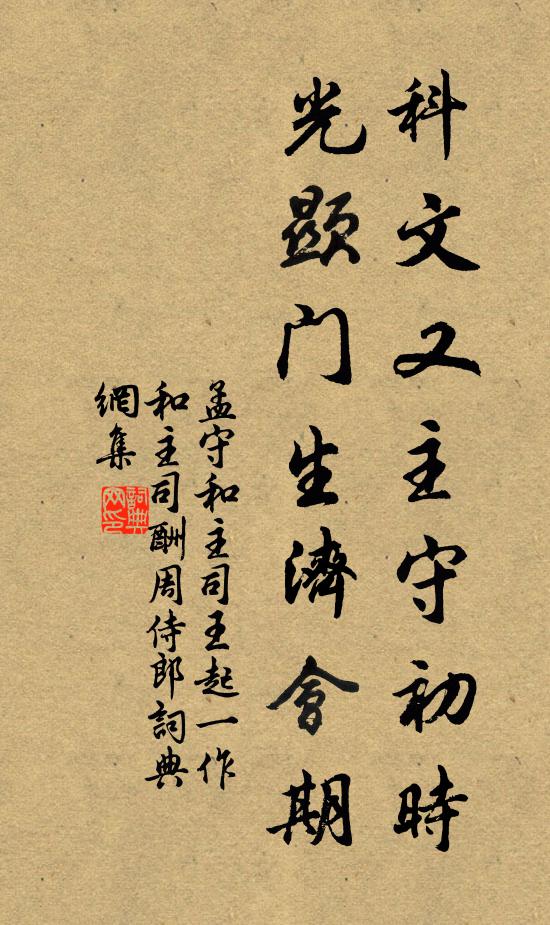 科文又主守初時
光顕门生濟會期
孟守和主司王起一作
和主司酬周侍郎詞典
網集
詞典
网印